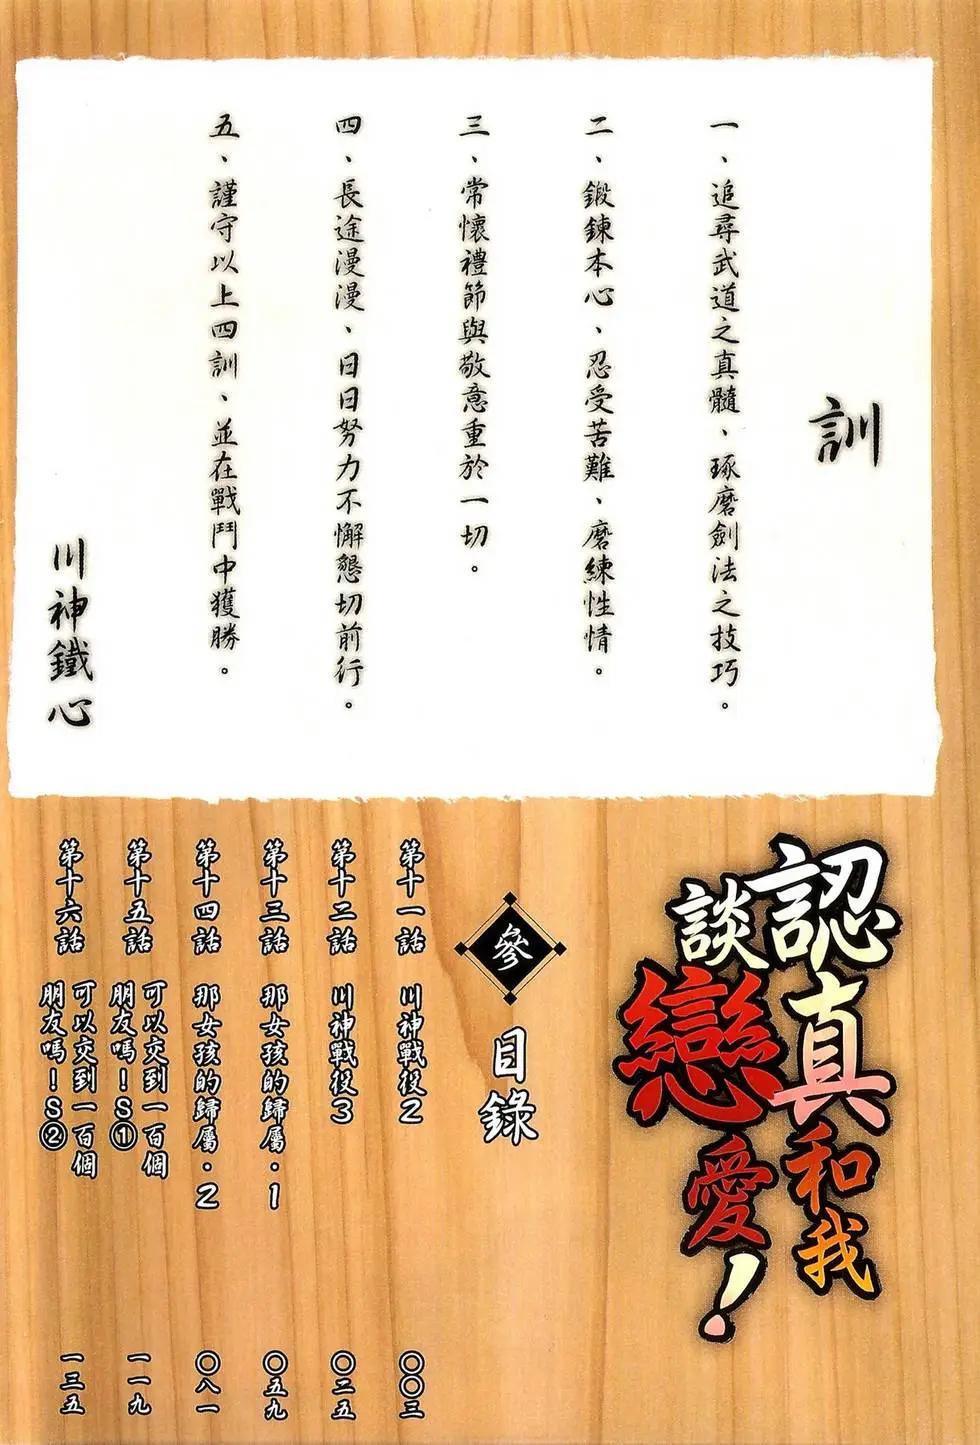 訓
一、追尋武道之真髓、琢磨劍法之技巧。
二、鍛鍊本心、忍受苦難、磨練性情。
三、常懷禮節與敬意重於一切。
四、長途漫漫、日日努力不懈懇切前行。
五、謹守以上四訓、並在戰鬥中獲勝。
川神鐵心
認真和我
談戀愛！
參
目錄
第十一話 川神戰役2 〇〇三
第十二話 川神戰役3 〇二五
第十三話 那女孩的歸屬・1 〇五九
第十四話 那女孩的歸屬・2 〇八一
第十五話 可以交到一百個
朋友嗎！S① 一一九
第十六話 可以交到一百個
朋友嗎！S② 一三五